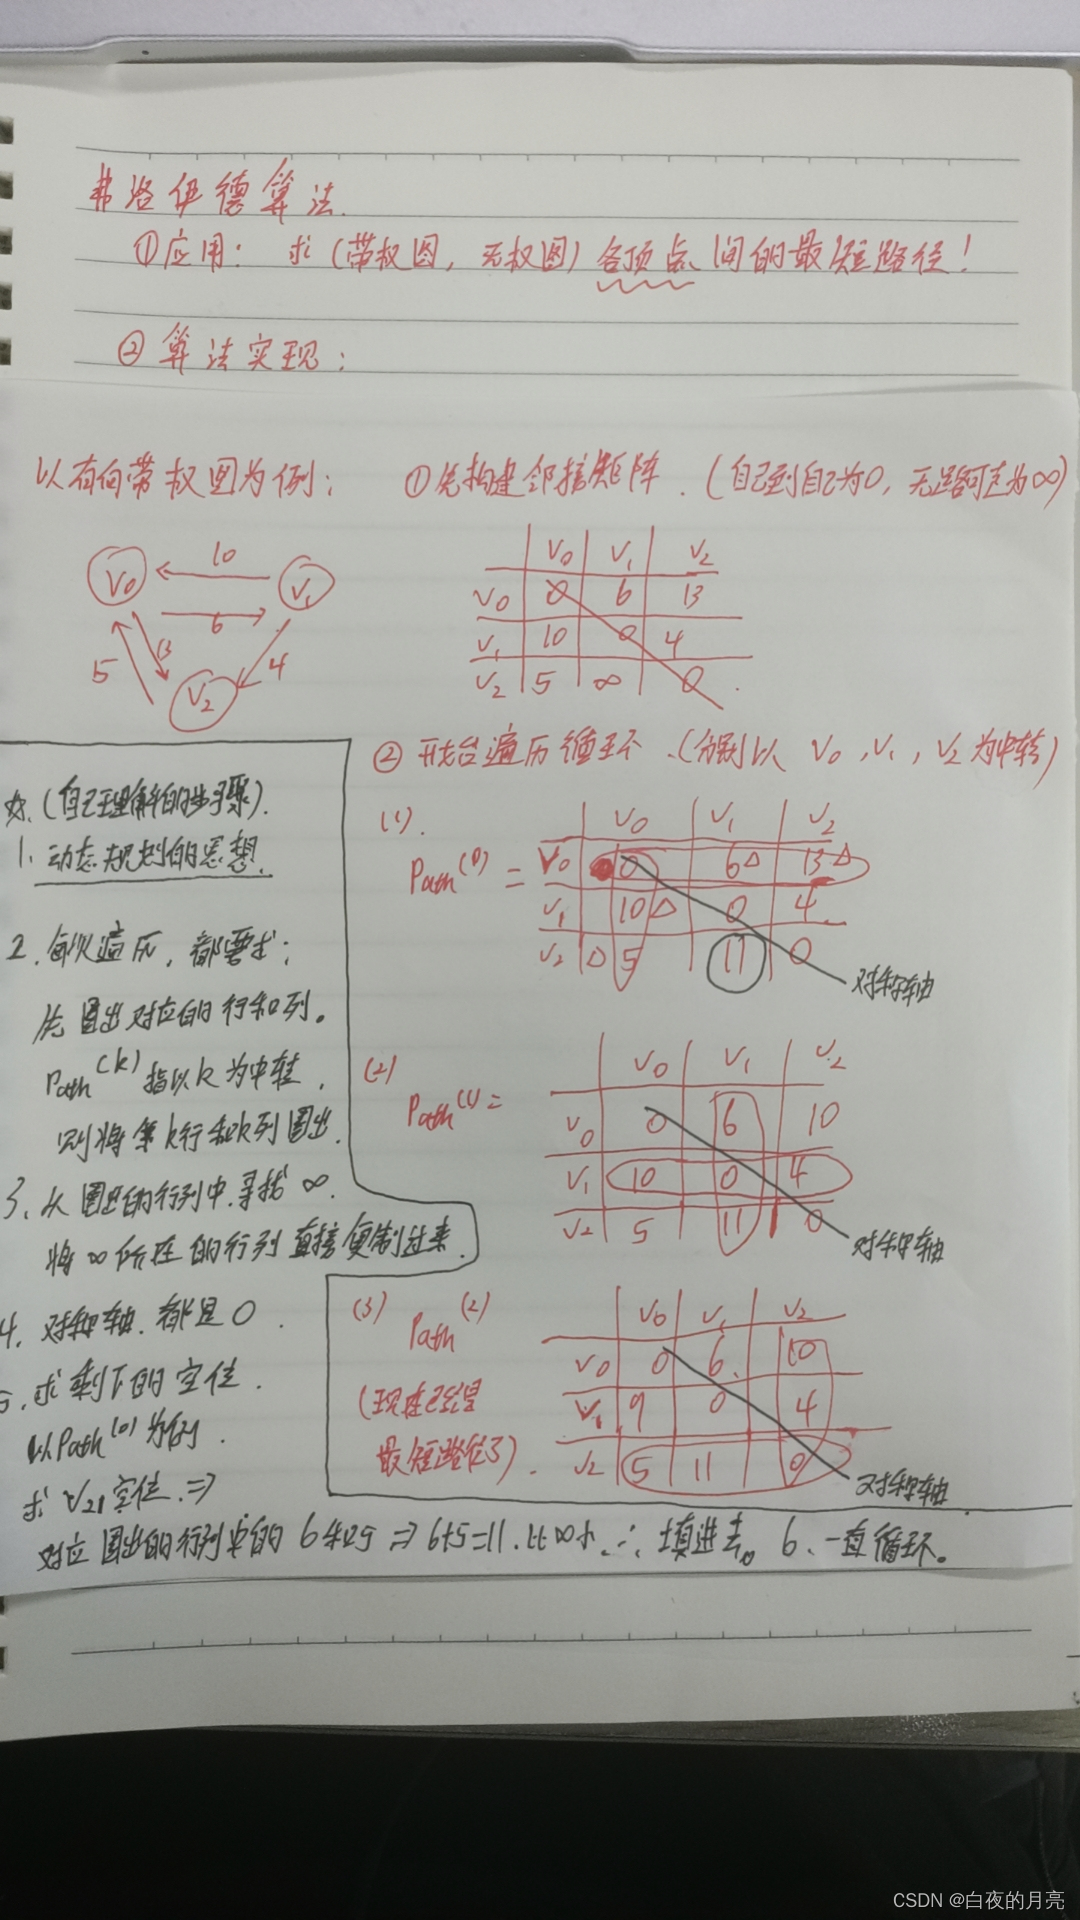 弗洛伊德算法.
①应用: 求(带权图, 无权图)各顶点间的最短路径!
②算法实现:
以有向带权图为例:
V0 V1 V2
10
6
13
5
4
①先构建邻接矩阵. (自己到自己为0, 无路可走为∞)
V0 V1 V2
V0 0 6 13
V1 10 0 4
V2 5 ∞ 0
②开始遍历循环.(分别以 V0, V1, V2 为中转)
(1).
Path(0) =
V0 V1 V2
V0 0 6△ 13△
V1 10△ 0 4
V2 △5 11 0
对称轴
(2)
Path(1) =
V0 V1 V2
V0 0 6 10
V1 10 0 4
V2 5 11 0
对称轴
(3) Path(2)
(现在已经是
最短路径了).
V0 V1 V2
V0 0 6 10
V1 9 0 4
V2 5 11 0
对称轴
(自己理解的步骤).
1. 动态规划的思想.
2. 每次遍历, 都要求:
先圈出对应的行和列。
Path(k) 指以k为中转.
则将第k行和k列圈出.
3. 从圈出的行列中.寻找∞.
将∞所在的行列直接复制过来.
4. 对称轴.都是0.
5. 求剩下的空位.
以Path(0)为例.
求V21空位.⇒
对应圈出的行列中的6和5 ⇒ 6+5=11.比∞小.∴填进去。6、一直循环。
CSDN @白夜的月亮